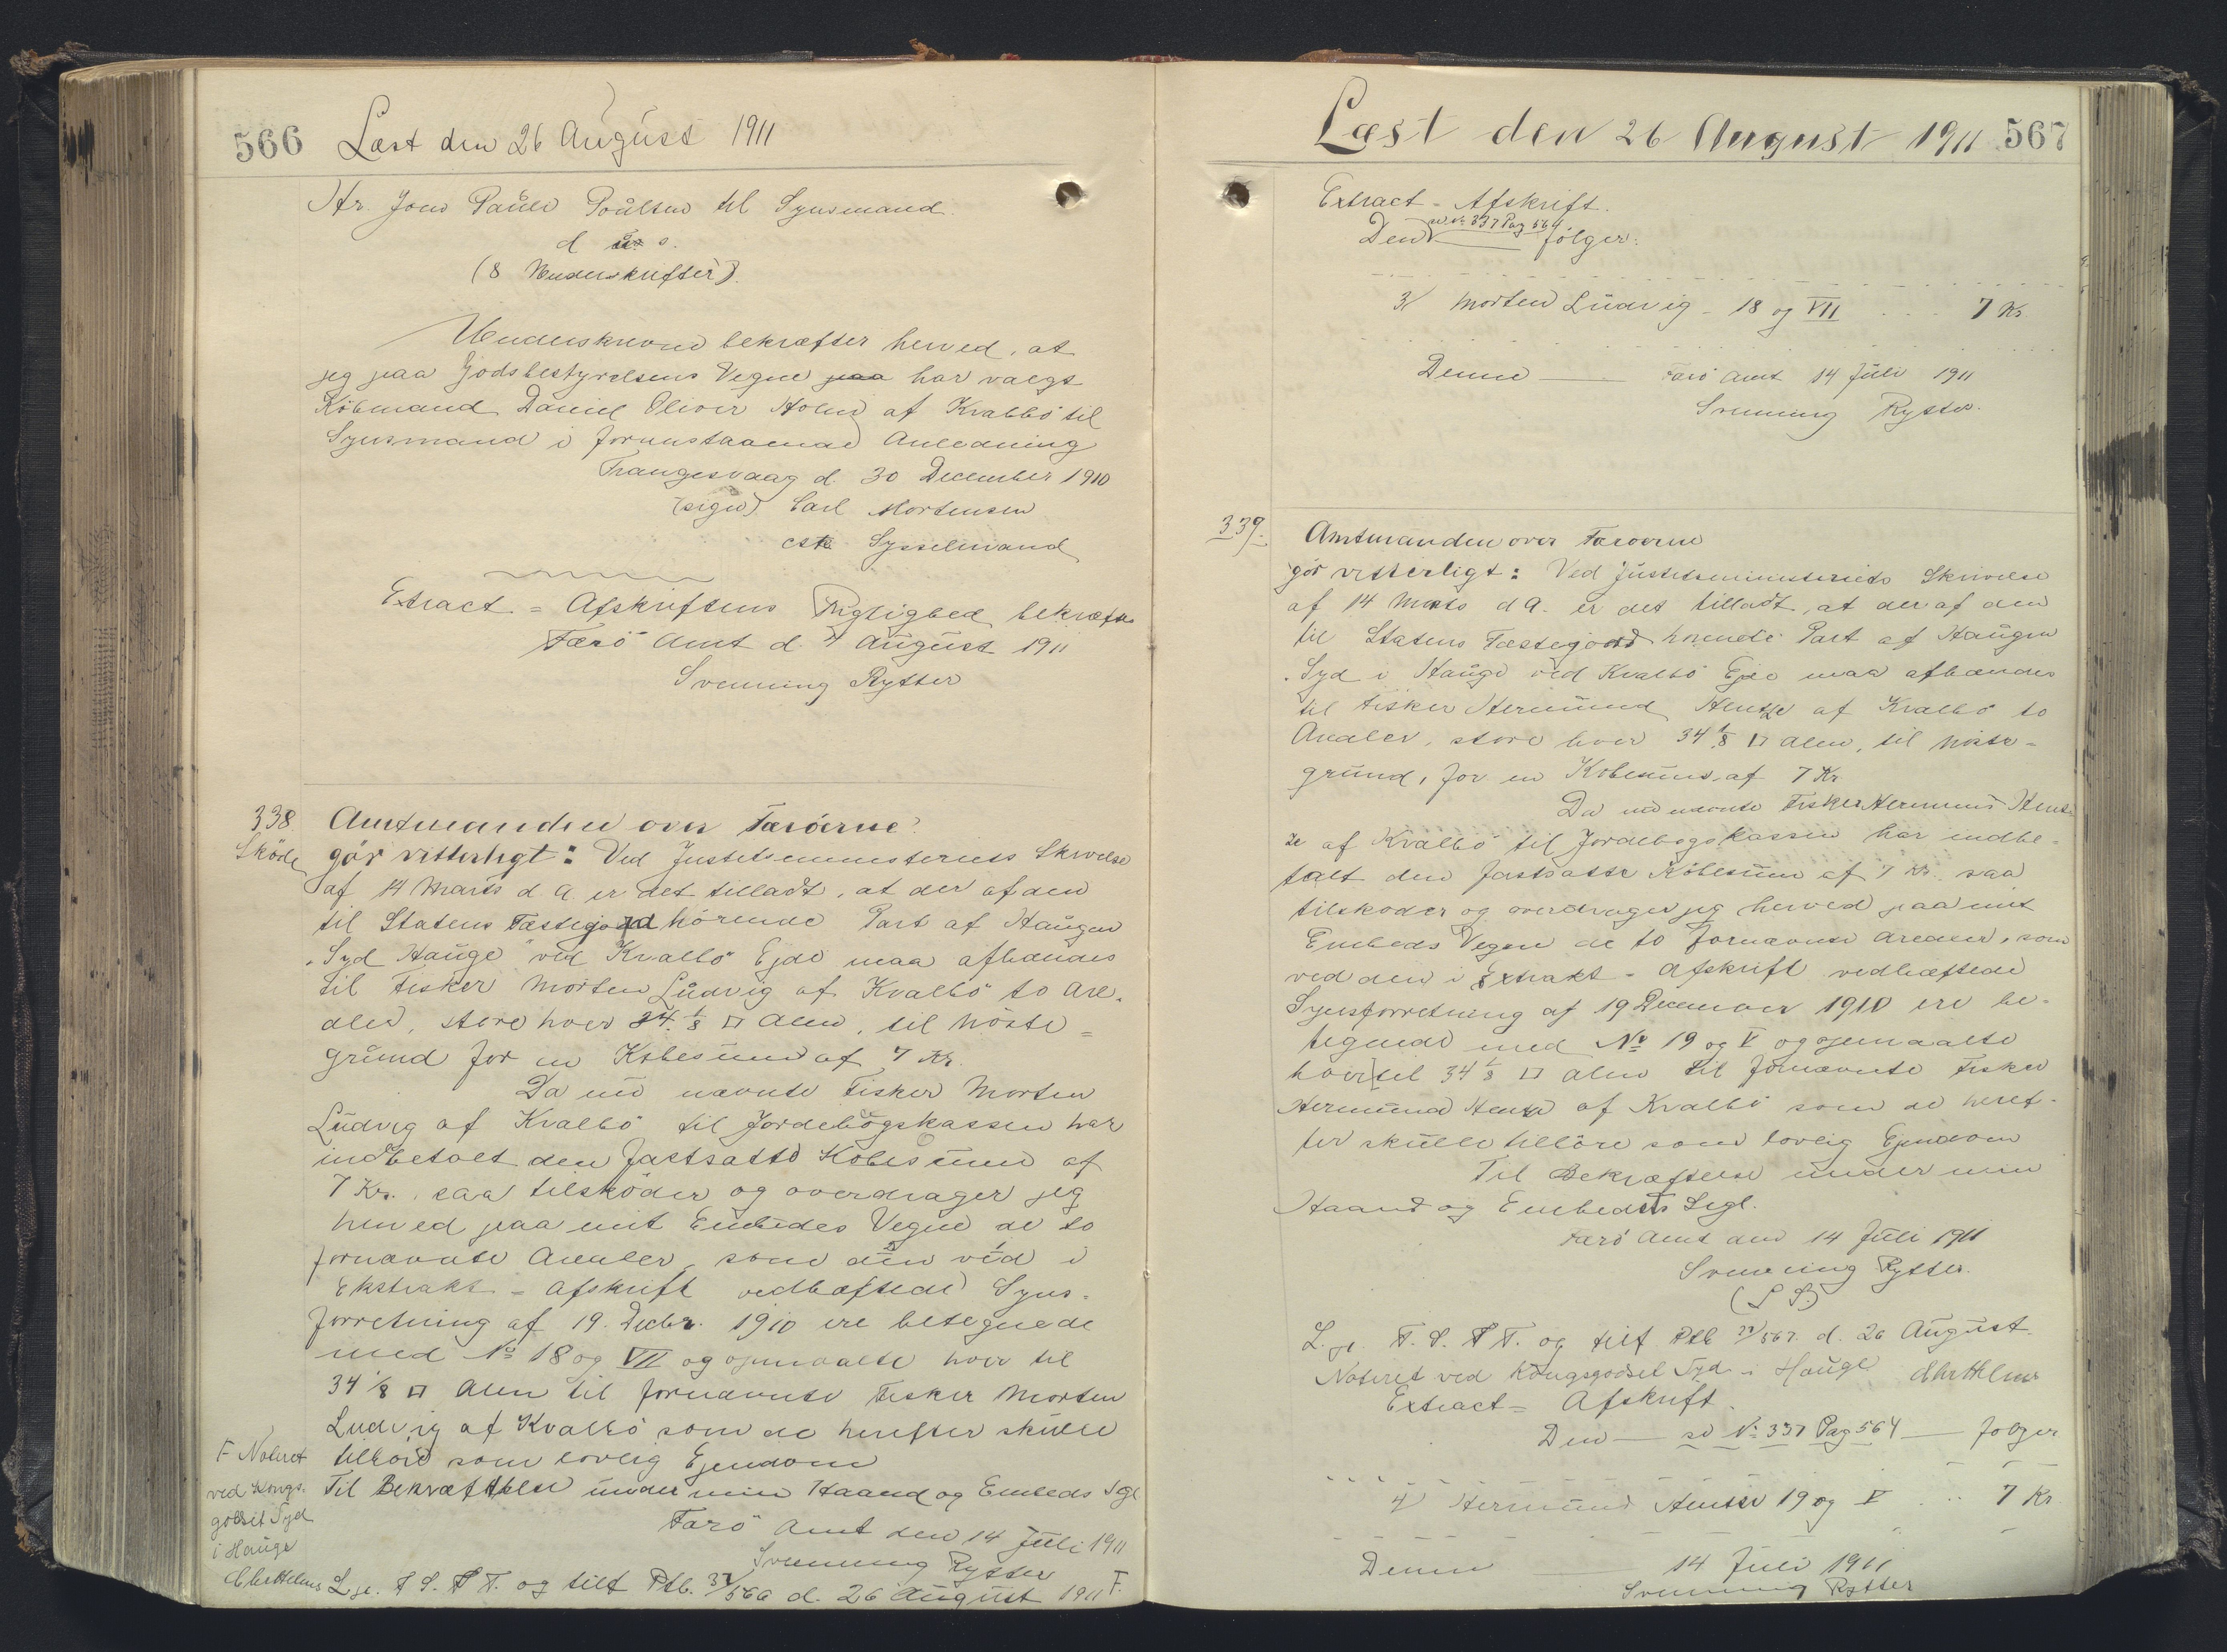 566 Læst den 26 August 1911
Hr. Jens Pauli Poulsen til Synsmand.
d. u. s.
(8 Underskrifter).
Underskrevne bekræfter herved, at
jeg paa Godsbestyrelsens Vegne paa har valgt
Købmand Daniel Oliver Holm af Kvalbö til
Synsmand i foranstaaende Anledning
Trangesvaag d. 30 December 1910
(sign) Carl Mortensen
cst. Sysselmand
Extract = Afskriftens Rigtighed bekræftes
Færö Amt d. 4 August 1911
Svenning Rytter
338. Amtmanden over Færöerne
Sköde gör vitterligt: Ved Justitsministeriets Skrivelse
af 14 Marts d. A. er det tilladt, at der af den
til Statens Fæstegods hörende Part af Haugen
"Syd Hauge" ved Kvalbö Ejde maa afhændes
til Fisker Morten Ludvig af Kvalbö to Are-
aler, store hver 34 1/8 □ Alen, til Nöste =
grund for en Köbesum af 7 Kr.
Da nu nævnte Fisker Morten
Ludvig af Kvalbö til Jordebogskassen har
indbetalt den fastsatte Köbesum af
7 Kr., saa tilsköder og overdrager jeg
herved paa mit Embedes Vegne de to
fornævnte Arealer, som den ved i
Ekstrakt = Afskrift vedhæftede Syns =
forretning af 19. Decbr. 1910 ere betegnede
med No 18 og VII og opmaalte hver til
34 1/8 □ Alen til fornævnte Fisker Morten
Ludvig af Kvalbö som de herefter skulle
tilhöre som lovlig Ejendom
Til Bekræftelse under min Haand og Embeds Segl
Færö Amt den 14 Juli 1911
Svenning Rytter
L. gl. F. S. F. T. og tilf. Ptb. 37/566 d. 26 August 1911 F.
F Noteret
ved Kongs-
godset Syd
i Hauge
567 Læst den 26 August 1911
Extract = Afskrift.
Den — se No 337 Pag 564 — fölger:
3/ Morten Ludvig - 18 og VII . . . 7 Kr.
Denne — Færö Amt 14 Juli 1911
Svenning Rytter.
339. Amtmanden over Færoerne
gör vitterligt: Ved Justitsministeriets Skrivelse
af 14 Marts d A. er det tilladt, at der af den
til Statens Fæstegods hörende Part af Haugen
"Syd i Hauge ved Kvalbö Ejde maa afhændes
til Fisker Hermund Hentze af Kvalbö to
Arealer, store hver 34 1/8 □ Alen, til Nöste =
grund, for en Köbesum af 7 Kr
Da nu nævnte Fisker Hermund Hent
ze af Kvalbö til Jordebogskassen har indbe =
talt den fastsatte Köbesum af 7 Kr. saa
tilskoder og overdrager jeg herved paa mit
Embeds Vegne de to fornævnte Arealer, som
ved den i Extrakt = Afskrift vedhæftede
Synsforretning af 19 December 1910 ere be =
tegnede med No 19 og V og opmaalte
hver til 34 1/8 □ Alen til fornævnte Fisker
Hermund Hentze af Kvalbö som de heref-
ter skulle tilhöre som lovlig Ejendom
Til Bekræftelse under min
Haand og Embedets Segl.
Færö Amt den 14 Juli 1911
Svenning Rytter.
(L S)
L. gl. F. S. F T. og tilf Ptb 37/567. d. 26 August
Noteret ved Kongsgodset Syd i Hauge
Extract = Afskrift.
Den — se No 337 Pag 564 — fölger
4/ Hermund Hentze 19 og V . . . 7 Kr.
Denne — 14 Juli 1911
Svenning Rytter